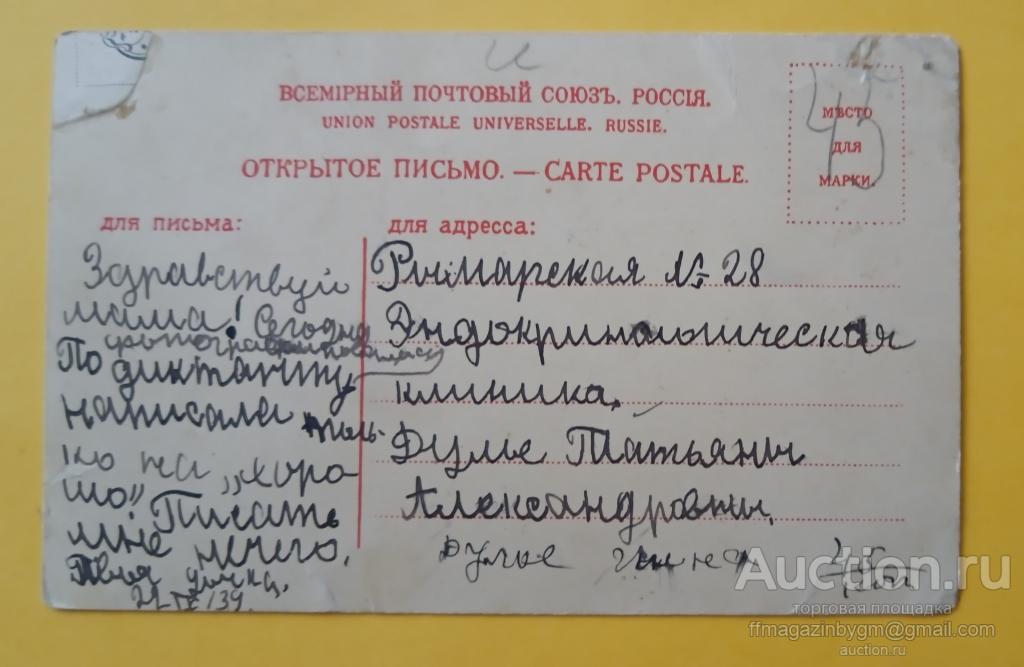 ВСЕМІРНЫЙ ПОЧТОВЫЙ СОЮЗЪ. РОССІЯ.
UNION POSTALE UNIVERSELLE. RUSSIE.
ОТКРЫТОЕ ПИСЬМО. — CARTE POSTALE.
45
МѢСТО
ДЛЯ
МАРКИ.
для письма:
Здравствуй
мама! Сегодня
фотографировалась
По диктанту
написала толь-
ко на „хоро-
шо”. Писать
мне нечего.
Твоя дочка.
для адресса:
Римарская № 28
Эндокринологическая
клиника.
Дулье Татьяны
Александровны.
Auction.ru
торговая площадка
ffmagazinbygm@gmail.com
auction.ru